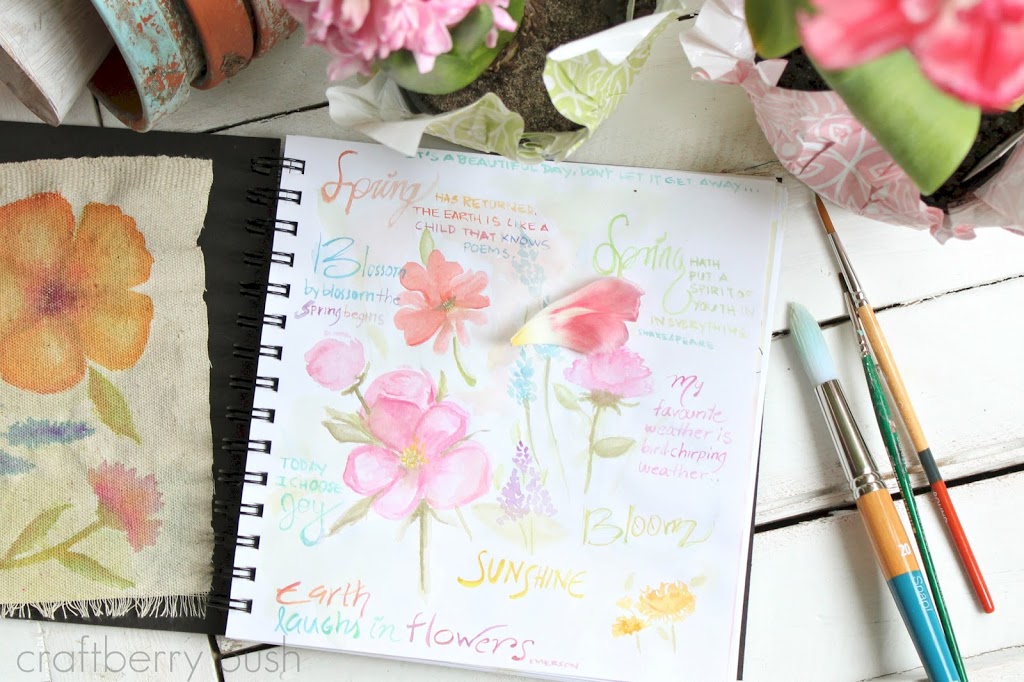 IT'S A BEAUTIFUL DAY, DON'T LET IT GET AWAY...
Spring
HAS RETURNED.
THE EARTH IS LIKE A
CHILD THAT KNOWS
POEMS.
Blossom
by blossom the
Spring begins
Spring
HATH
PUT A
SPIRIT OF
YOUTH IN
IN EVERYTHING
SHAKESPEARE
My
favourite
weather is
bird chirping
weather..
TODAY
I CHOOSE
Joy
Bloom
SUNSHINE
Earth
laughs in flowers.
EMERSON
Snap!
craftberry bush